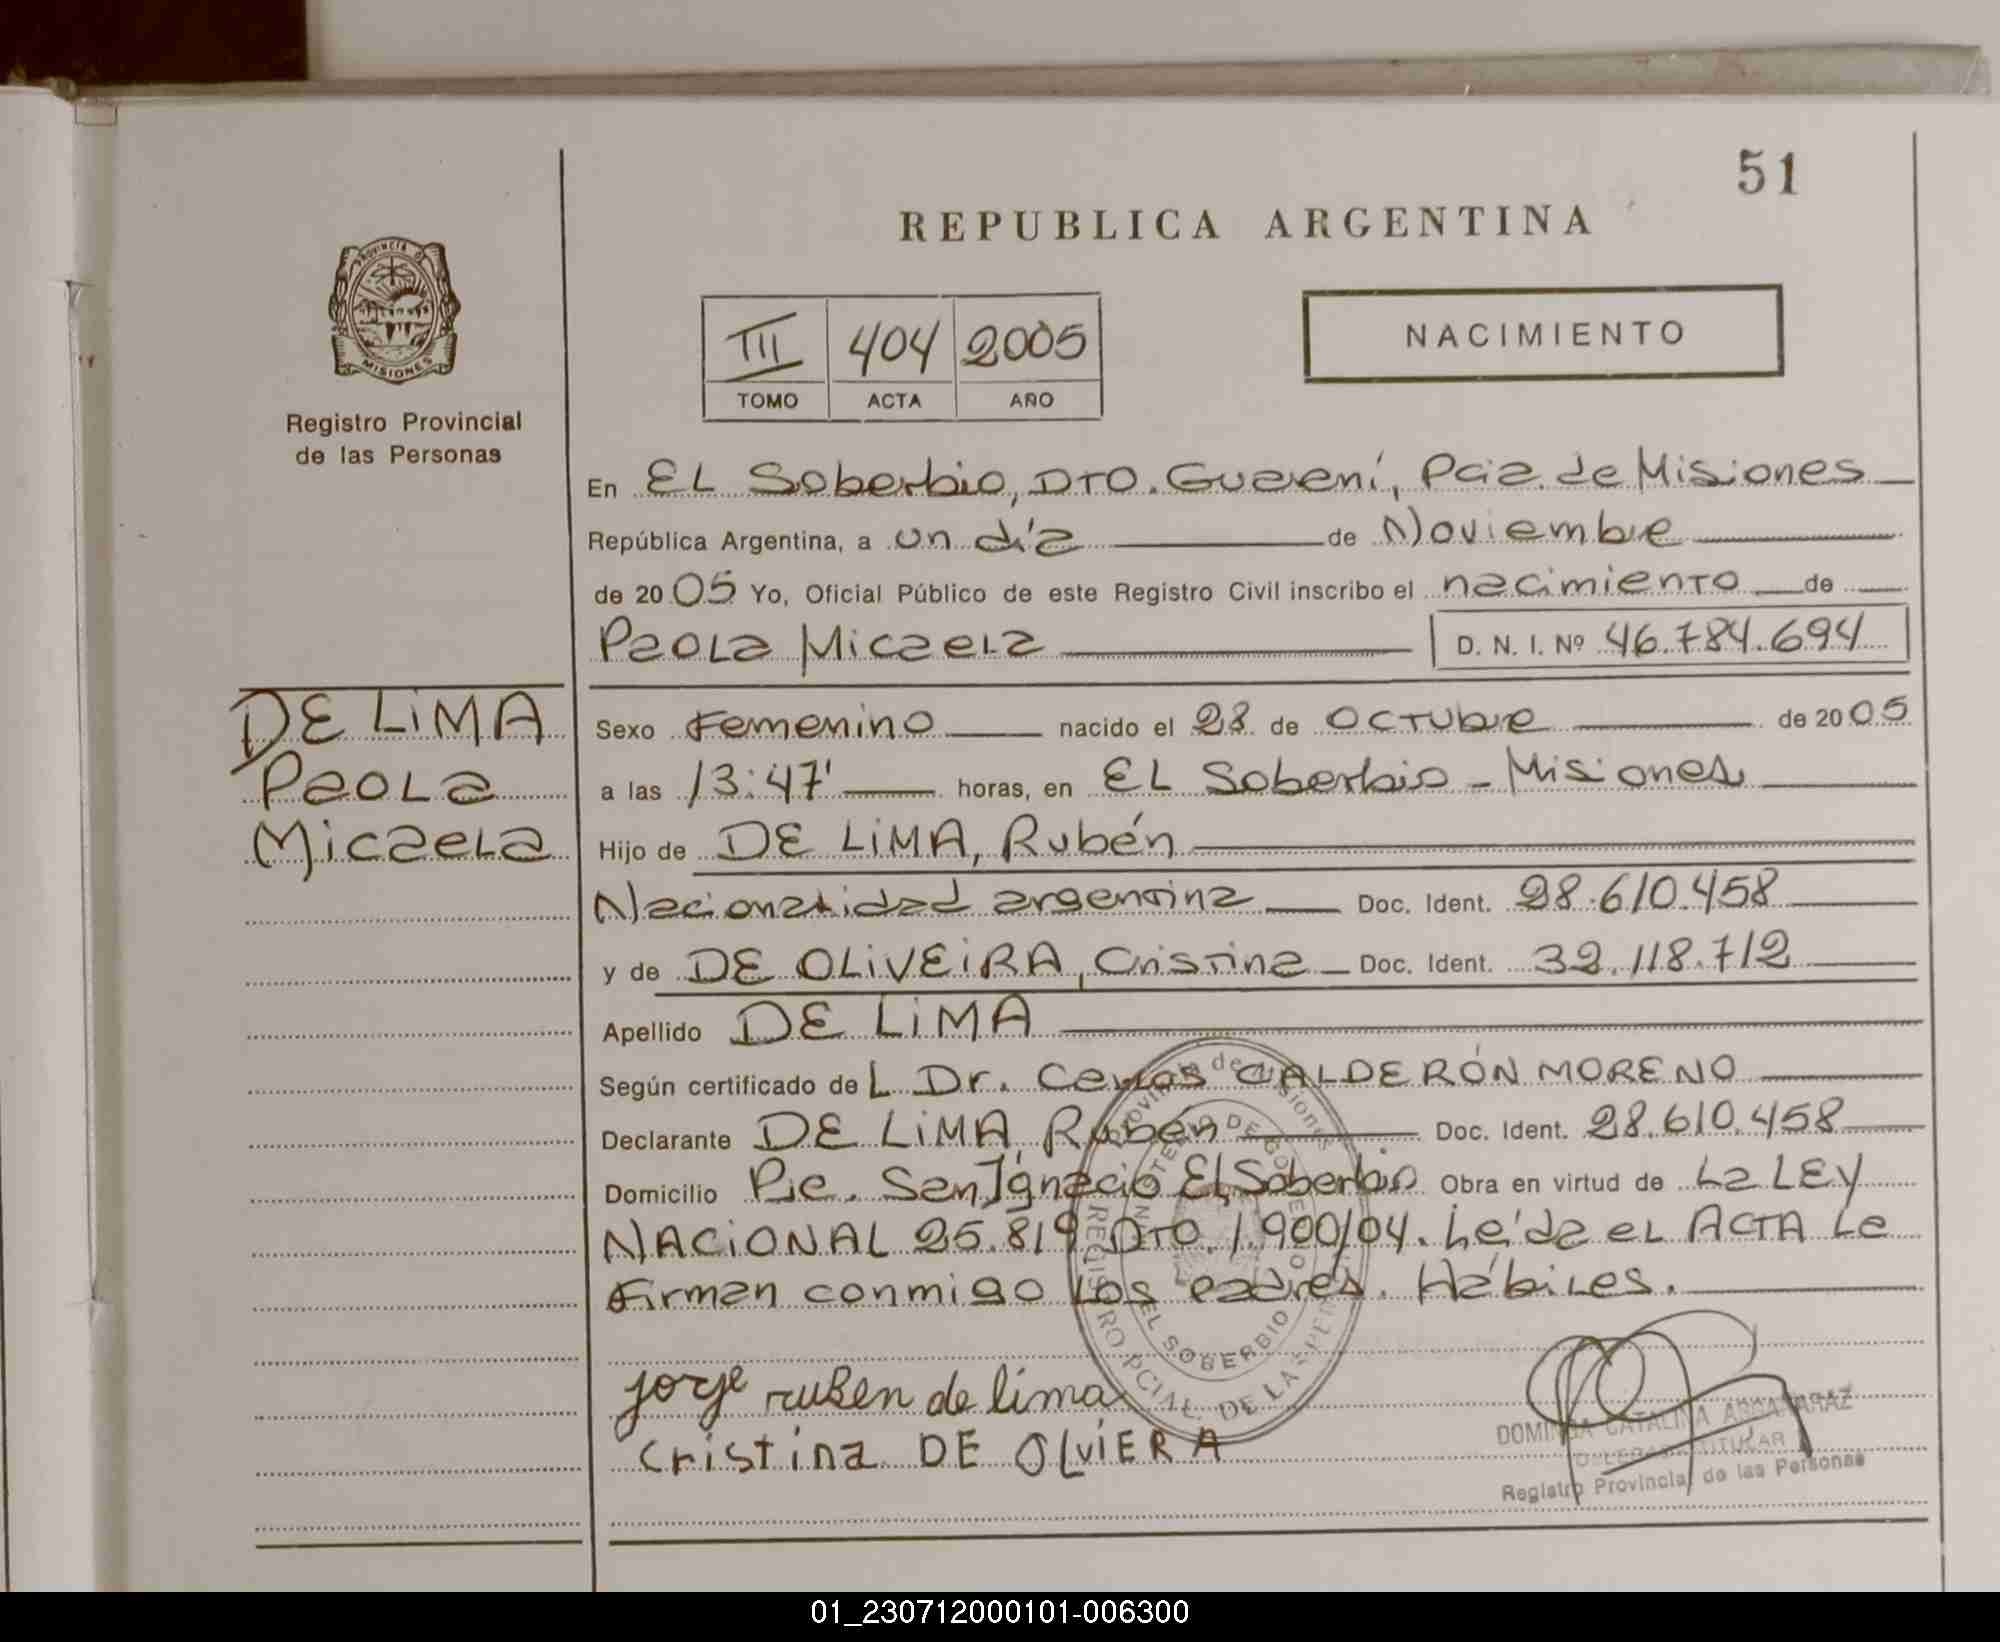 51
REPUBLICA ARGENTINA
PROVINCIA DE
MISIONES
Registro Provincial
de las Personas
III 404 2005
TOMO ACTA AÑO
NACIMIENTO
En EL Soberbio, DTO. Guaraní, Pcia. de Misiones
República Argentina, a un día de Noviembre
de 2005 Yo, Oficial Público de este Registro Civil inscribo el nacimiento de
Paola Micaela D. N. I. Nº 46.784.694
DE LiMA
Paola
Micaela
Sexo Femenino nacido el 28 de Octubre de 2005
a las 13:47' horas, en EL Soberbio - Misiones
Hijo de DE LiMA, Rubén
Nacionalidad argentina Doc. Ident. 28.610.458
y de DE OLiVEiRA, Cristina Doc. Ident. 32.118.712
Apellido DE LiMA
Según certificado del Dr. Carlos CALDERÓN MORENO
Declarante DE LiMA, Rubén Doc. Ident. 28.610.458
Domicilio Pje. San Ignacio El Soberbio Obra en virtud de La LEY
NACiONAL 25.819 DTO. 1.900/04. Leída el ACTA La
firman conmigo los padres. Hábiles.
Jorje ruben de lima
Cristina DE OLVIERA
Provincia de Misiones
REGISTRO PCIAL. DE LAS
EL SOBERBIO
DOMINGA CATALINA
TITULAR
Registro Provincial de las Personas
01_230712000101-006300